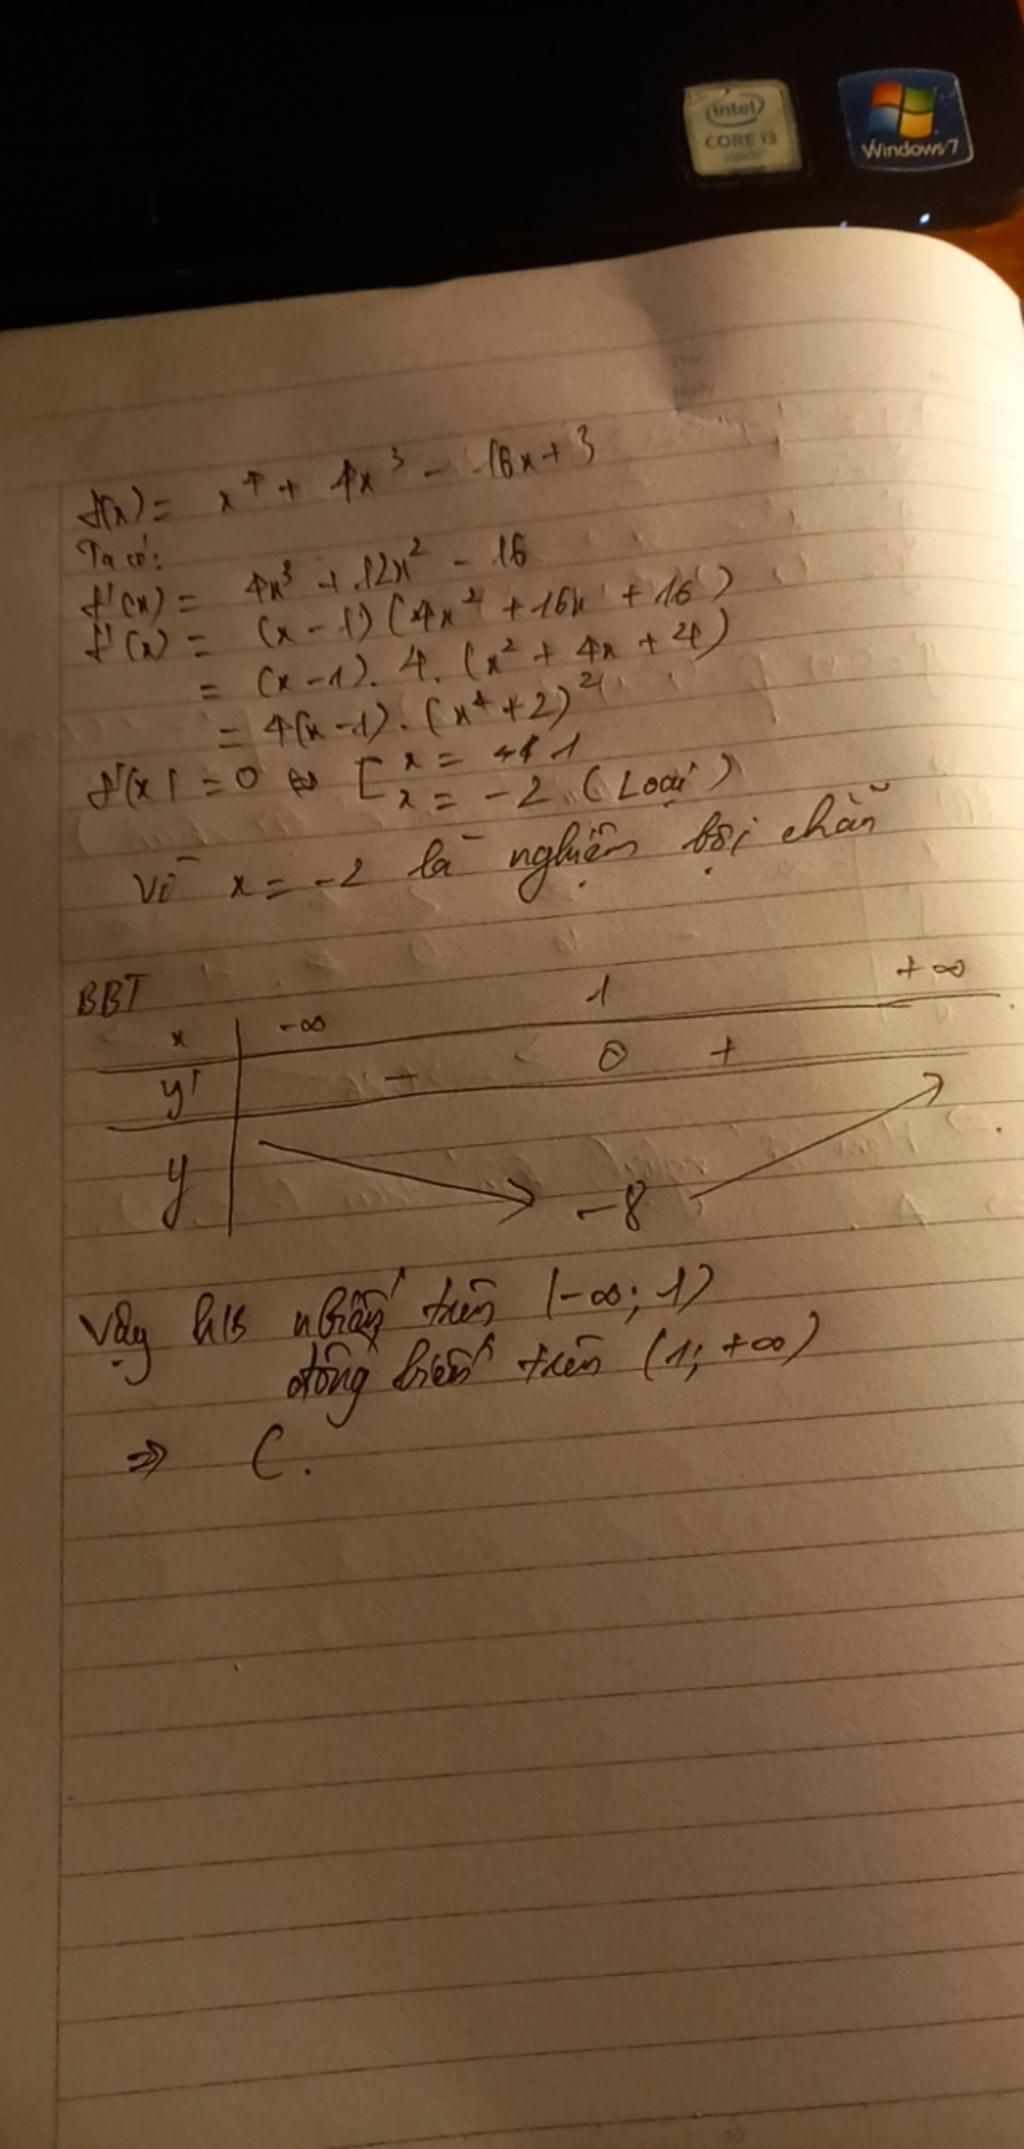 intel
CORE i3
Windows 7
Thứ
Ngày
No.
f(x) = x⁴ + 4x³ - 16x + 3
Ta có:
f'(x) = 4x³ + 12x² - 16
f'(x) = (x - 1) (4x² + 16x + 16)
= (x - 1). 4. (x² + 4x + 4)
= 4(x - 1). (x + 2)²
f'(x) = 0 ⇔ [ x = 1
x = -2 (Loại)
Vì x = -2 là nghiệm bội chẵn
BBT
x -∞ 1 +∞
y' - 0 +
y -8
Vậy h/s nbiến trên (-∞; 1)
đồng biến trên (1; +∞)
⇒ C.